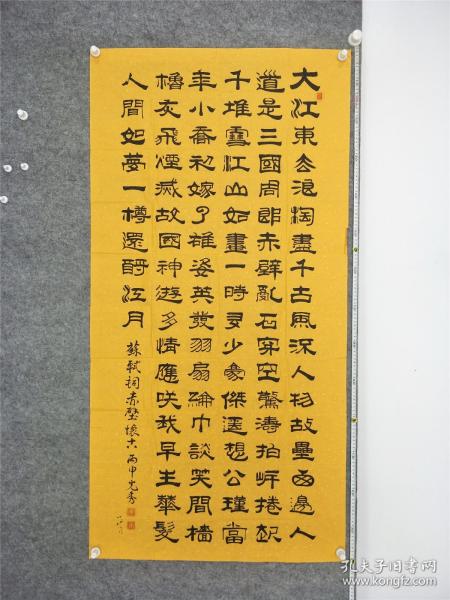 大江東去浪淘盡千古風流人物故壘西邊人
道是三國周郎赤壁亂石穿空驚濤拍岸捲起
千堆雪江山如畫一時多少豪傑遙想公瑾當
年小喬初嫁了雄姿英發羽扇綸巾談笑間檣
櫓灰飛煙滅故國神遊多情應笑我早生華髮
人間如夢一樽還酹江月
蘇軾詞赤壁懷古丙申光秀
孔夫子旧书网
www.kongfz.com